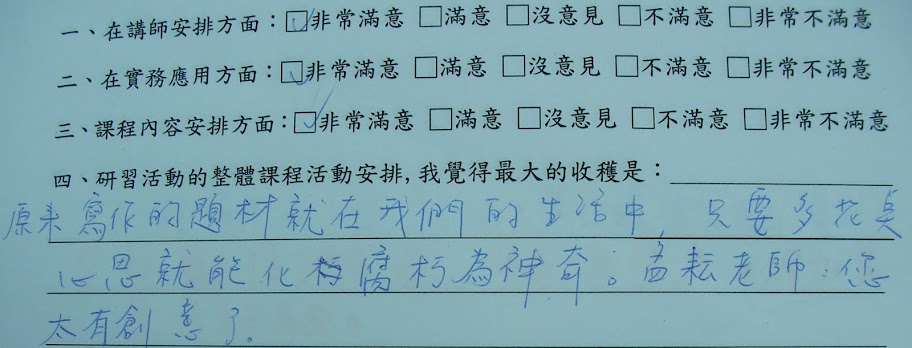 一、在講師安排方面：☑非常滿意 □滿意 □沒意見 □不滿意 □非常不滿意
二、在實務應用方面：☑非常滿意 □滿意 □沒意見 □不滿意 □非常不滿意
三、課程內容安排方面：☑非常滿意 □滿意 □沒意見 □不滿意 □非常不滿意
四、研習活動的整體課程活動安排, 我覺得最大的收穫是：
原來寫作的題材就在我們的生活中，只要多花點
心思就能化腐朽為神奇。耘老師：您
太有創意了。